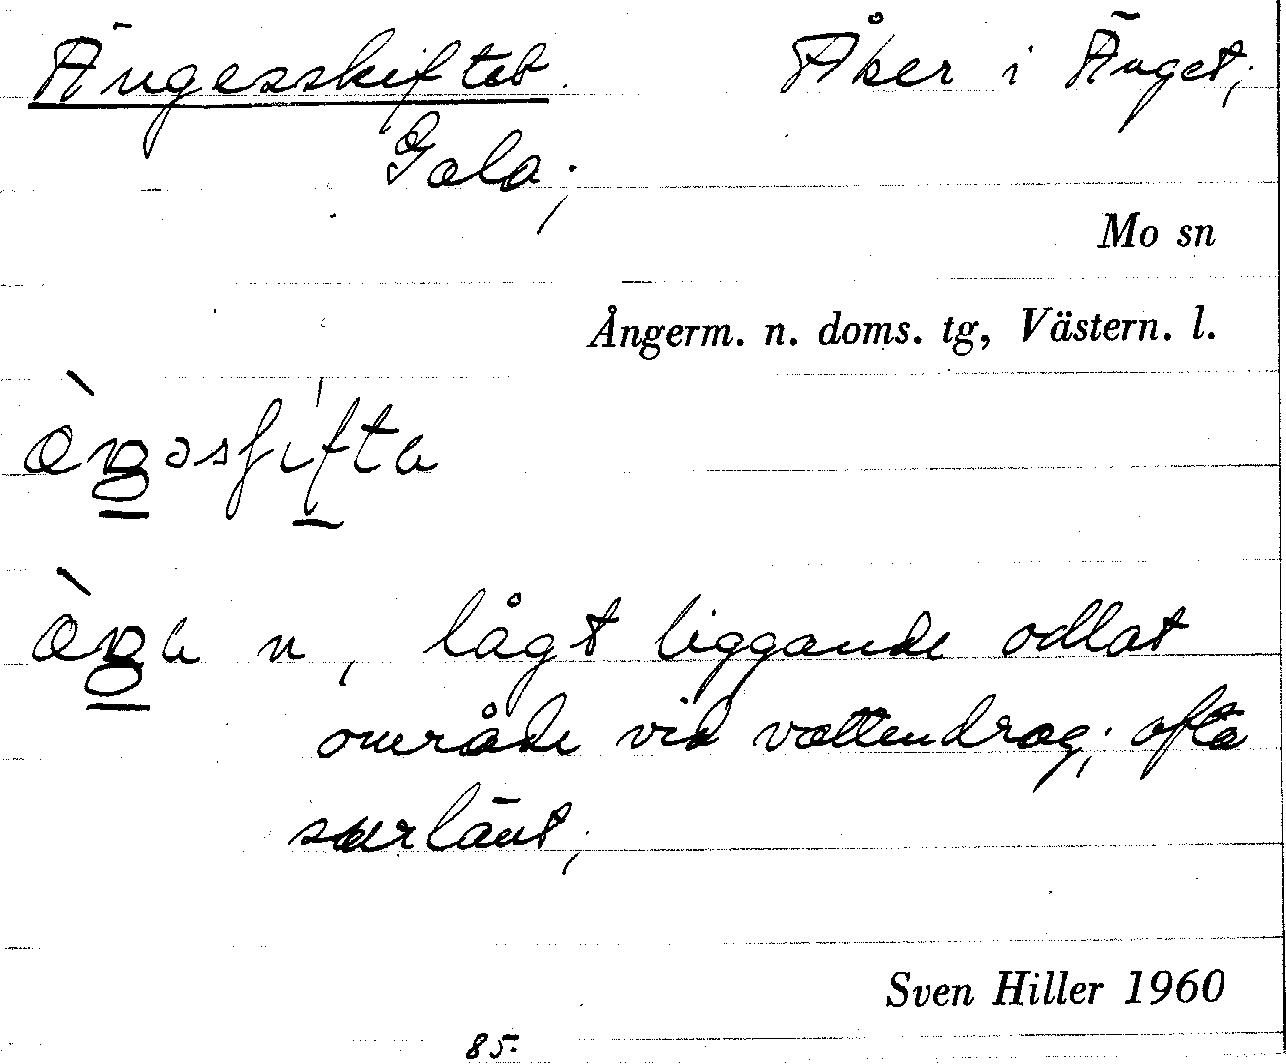 Ängesskiftet. Åker i Änget;
Gala;
Mo sn
Ångerm. n. doms. tg, Västern. l.
n, lågt liggande odlat
område vid vattendrag; ofta
surlänt;
Sven Hiller 1960
85.